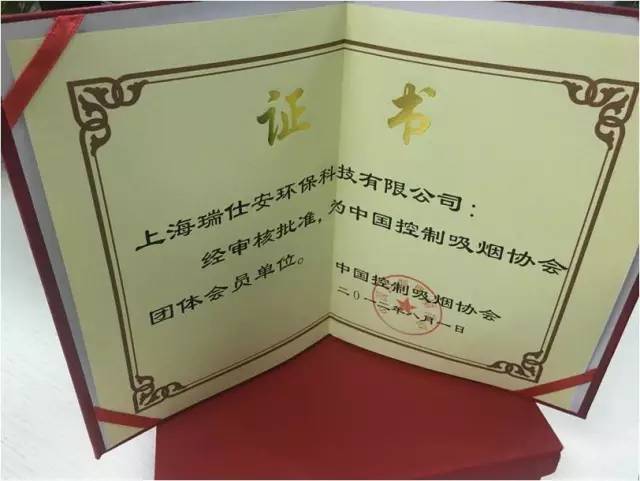 证书
上海瑞仕安环保科技有限公司：
经审核批准，为中国控制吸烟协会
团体会员单位。
中国控制吸烟协会
二〇一二年八月一日